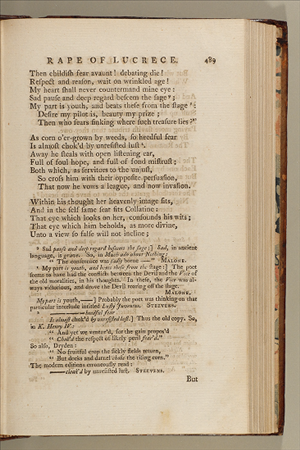 RAPE OF LUCRECE. 489
Then childish fear avaunt! debating die!
Respect and reason, wait on wrinkled age!
My heart shall never countermand mine eye:
Sad pause and deep regard beseem the sage;
My part is youth, and beats these from the stage:
Desire my pilot is, beauty my prize;
Then who fears sinking where such treasure lies?
As corn o'er-grown by weeds, so heedful fear
Is almost chok'd by unresisted lust.
Away he steals with open listening ear,
Full of foul hope, and full of fond mistrust;
Both which, as servitors to the unjust,
So cross him with their opposite persuasion,
That now he vows a league, and now invasion.
Within his thought her heavenly image sits,
And in the self same seat sits Collatine:
That eye which looks on her, confounds his wits;
That eye which him beholds, as more divine,
Unto a view so false will not incline;
Sad pause and deep regard beseem the sage;] Sad, in ancient
language, is grave. So, in Much ado about Nothing:
"The conference was sadly borne —" MALONE.
My part is youth, and beats these from the stage:] The poet
seems to have had the conflicts between the Devil and the Vice of
the old moralities, in his thoughts. In these, the Vice was al-
ways victorious, and drove the Devil roaring off the stage.
MALONE.
My part is youth,——] Probably the poet was thinking on that
particular interlude intitled Lusty Juventus. STEEVENS.
——heedful fear
Is almost chok'd by unresisted lust.] Thus the old copy. So,
in K. Henry IV:
"And yet we venter'd, for the gain propos'd
"Chok'd the respect of likely peril fear'd."
So also, Dryden:
"No fruitful crop the sickly fields return,
"But docks and darnel choke the rising corn."
The modern editions erroneously read:
——cloak'd by unresisted lust. STEEVENS.
But